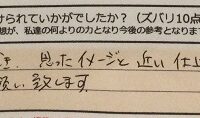 けられていかがでしたか？（ズバリ10点
想が、私達の何よりの力となり今後の参考となりま
思ったイメージと近い仕
致します。